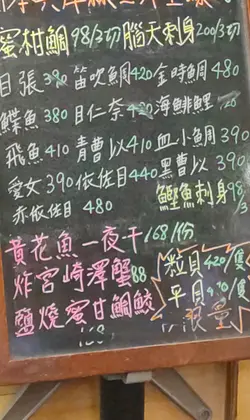 蜜柑鯛 98/3切 腦天刺身 200/3切
目張 390 笛吹鯛 420 金時鯛 480
鰈魚 380 目仁奈 海鯡鯉
飛魚 410 青曹以 410 血小鯛 390
愛女 390 依佐目 440 黑曹以 390
赤依佐目 480 鰹魚刺身 98/3
黄花魚一夜干 168/份
炸宮崎澤蟹 88
鹽燒蜜甘鯛鮫
粒貝 420/隻
平貝 /隻
限量